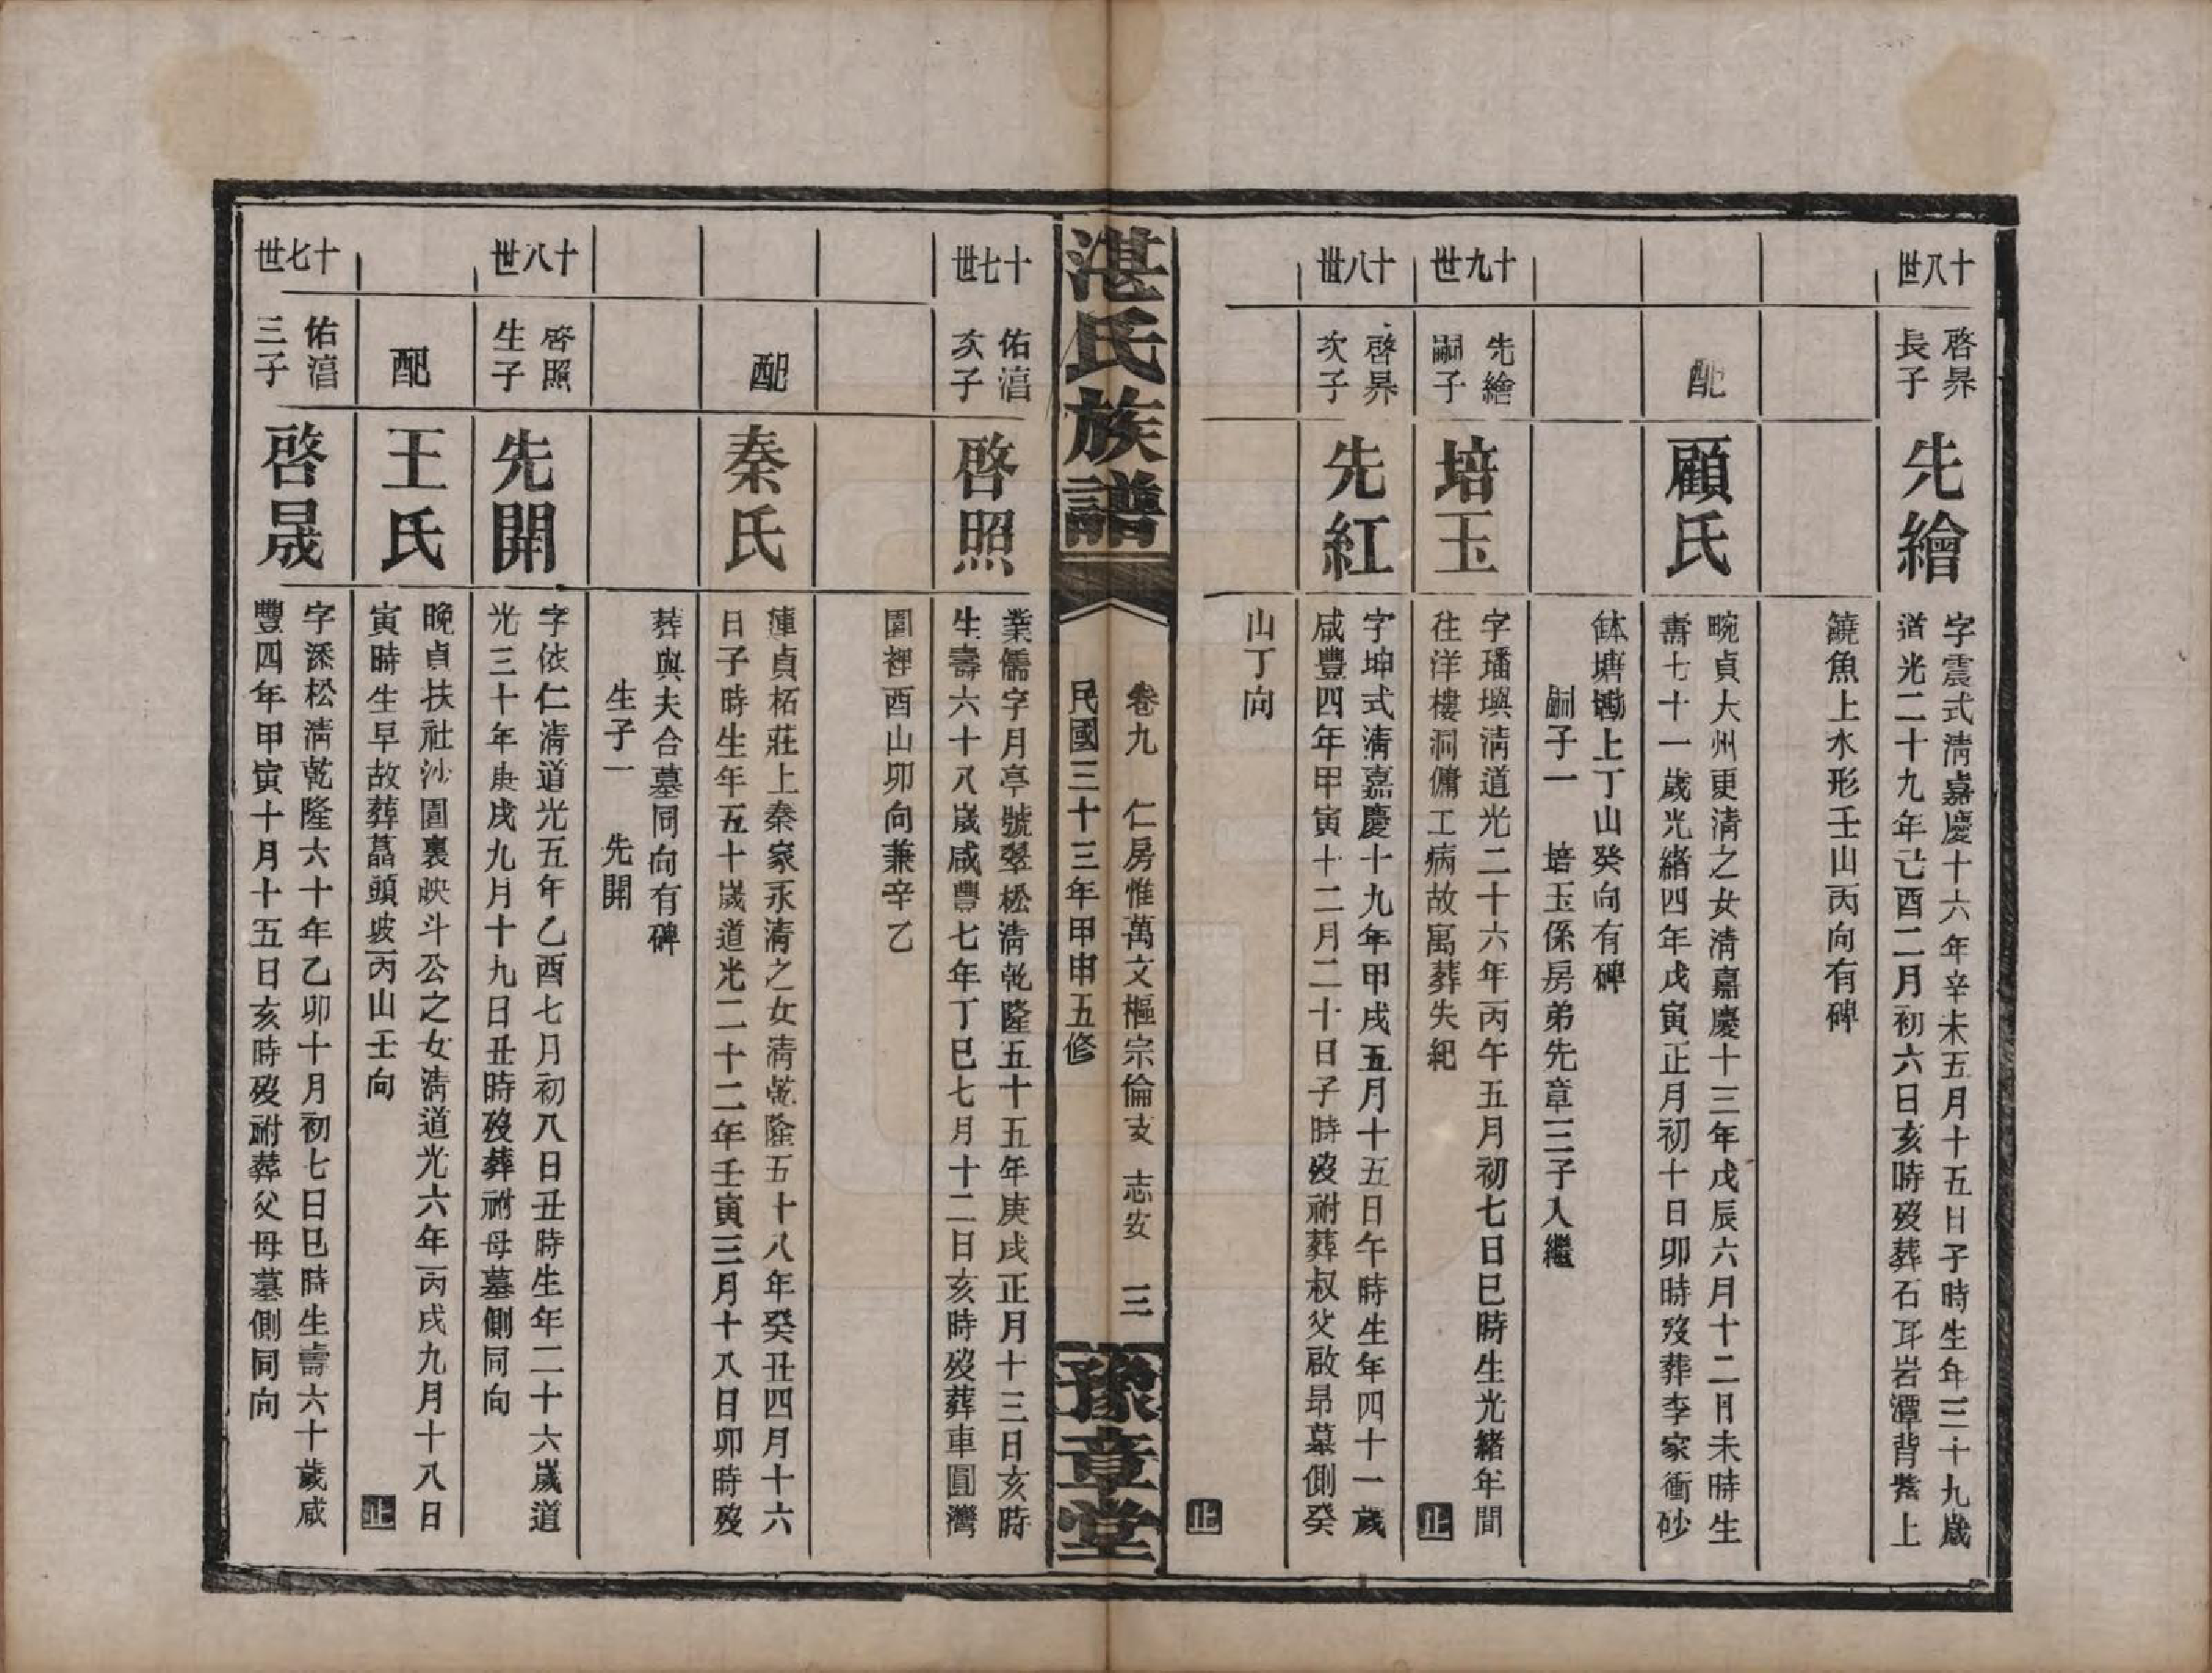 十八世
啓昦
長子
先繪
字震式淸嘉慶十六年辛未五月十五日子時生年三十九歲
道光二十九年己酉二月初六日亥時歿葬石耳岩潭背嶅上
鐃魚上水形壬山丙向有碑
配
顧氏
畹貞大州更淸之女淸嘉慶十三年戊辰六月十二日未時生
壽七十一歲光緒四年戊寅正月初十日卯時歿葬李家衝砂
缽塘墈上丁山癸向有碑
嗣子一　培玉係房弟先章三子入繼
十九世
先繪
嗣子
培玉
字璠璵淸道光二十六年丙午五月初七日巳時生光緒年間
往洋樓洞傭工病故寓葬失紀
止
十八世
啓昦
次子
先紅
字坤式淸嘉慶十九年甲戌五月十五日午時生年四十一歲
咸豐四年甲寅十二月二十日子時歿祔葬叔父啟昂墓側癸
山丁向
止
湛氏族譜
卷九　仁房惟萬文樞宗倫支　志安　三
民國三十三年甲申五修
豫章堂
十七世
佑㵮
次子
啓照
業儒字月亭號翠松淸乾隆五十五年庚戌正月十三日亥時
生壽六十八歲咸豐七年丁巳七月十二日亥時歿葬車圓灣
園裡酉山卯向兼辛乙
配
秦氏
蓮貞柘莊上秦家永淸之女淸乾隆五十八年癸丑四月十六
日子時生年五十歲道光二十二年壬寅三月十八日卯時歿
葬與夫合墓同向有碑
生子一　先開
十八世
啓照
生子
先開
字依仁淸道光五年乙酉七月初八日丑時生年二十六歲道
光三十年庚戌九月十九日丑時歿葬祔母墓側同向
配
王氏
晚貞扶社沙園裏映斗公之女淸道光六年丙戌九月十八日
寅時生早故葬菖頭坡丙山壬向
止
十七世
佑㵮
三子
啓晟
字添松淸乾隆六十年乙卯十月初七日巳時生壽六十歲咸
豐四年甲寅十月十五日亥時歿祔葬父母墓側同向